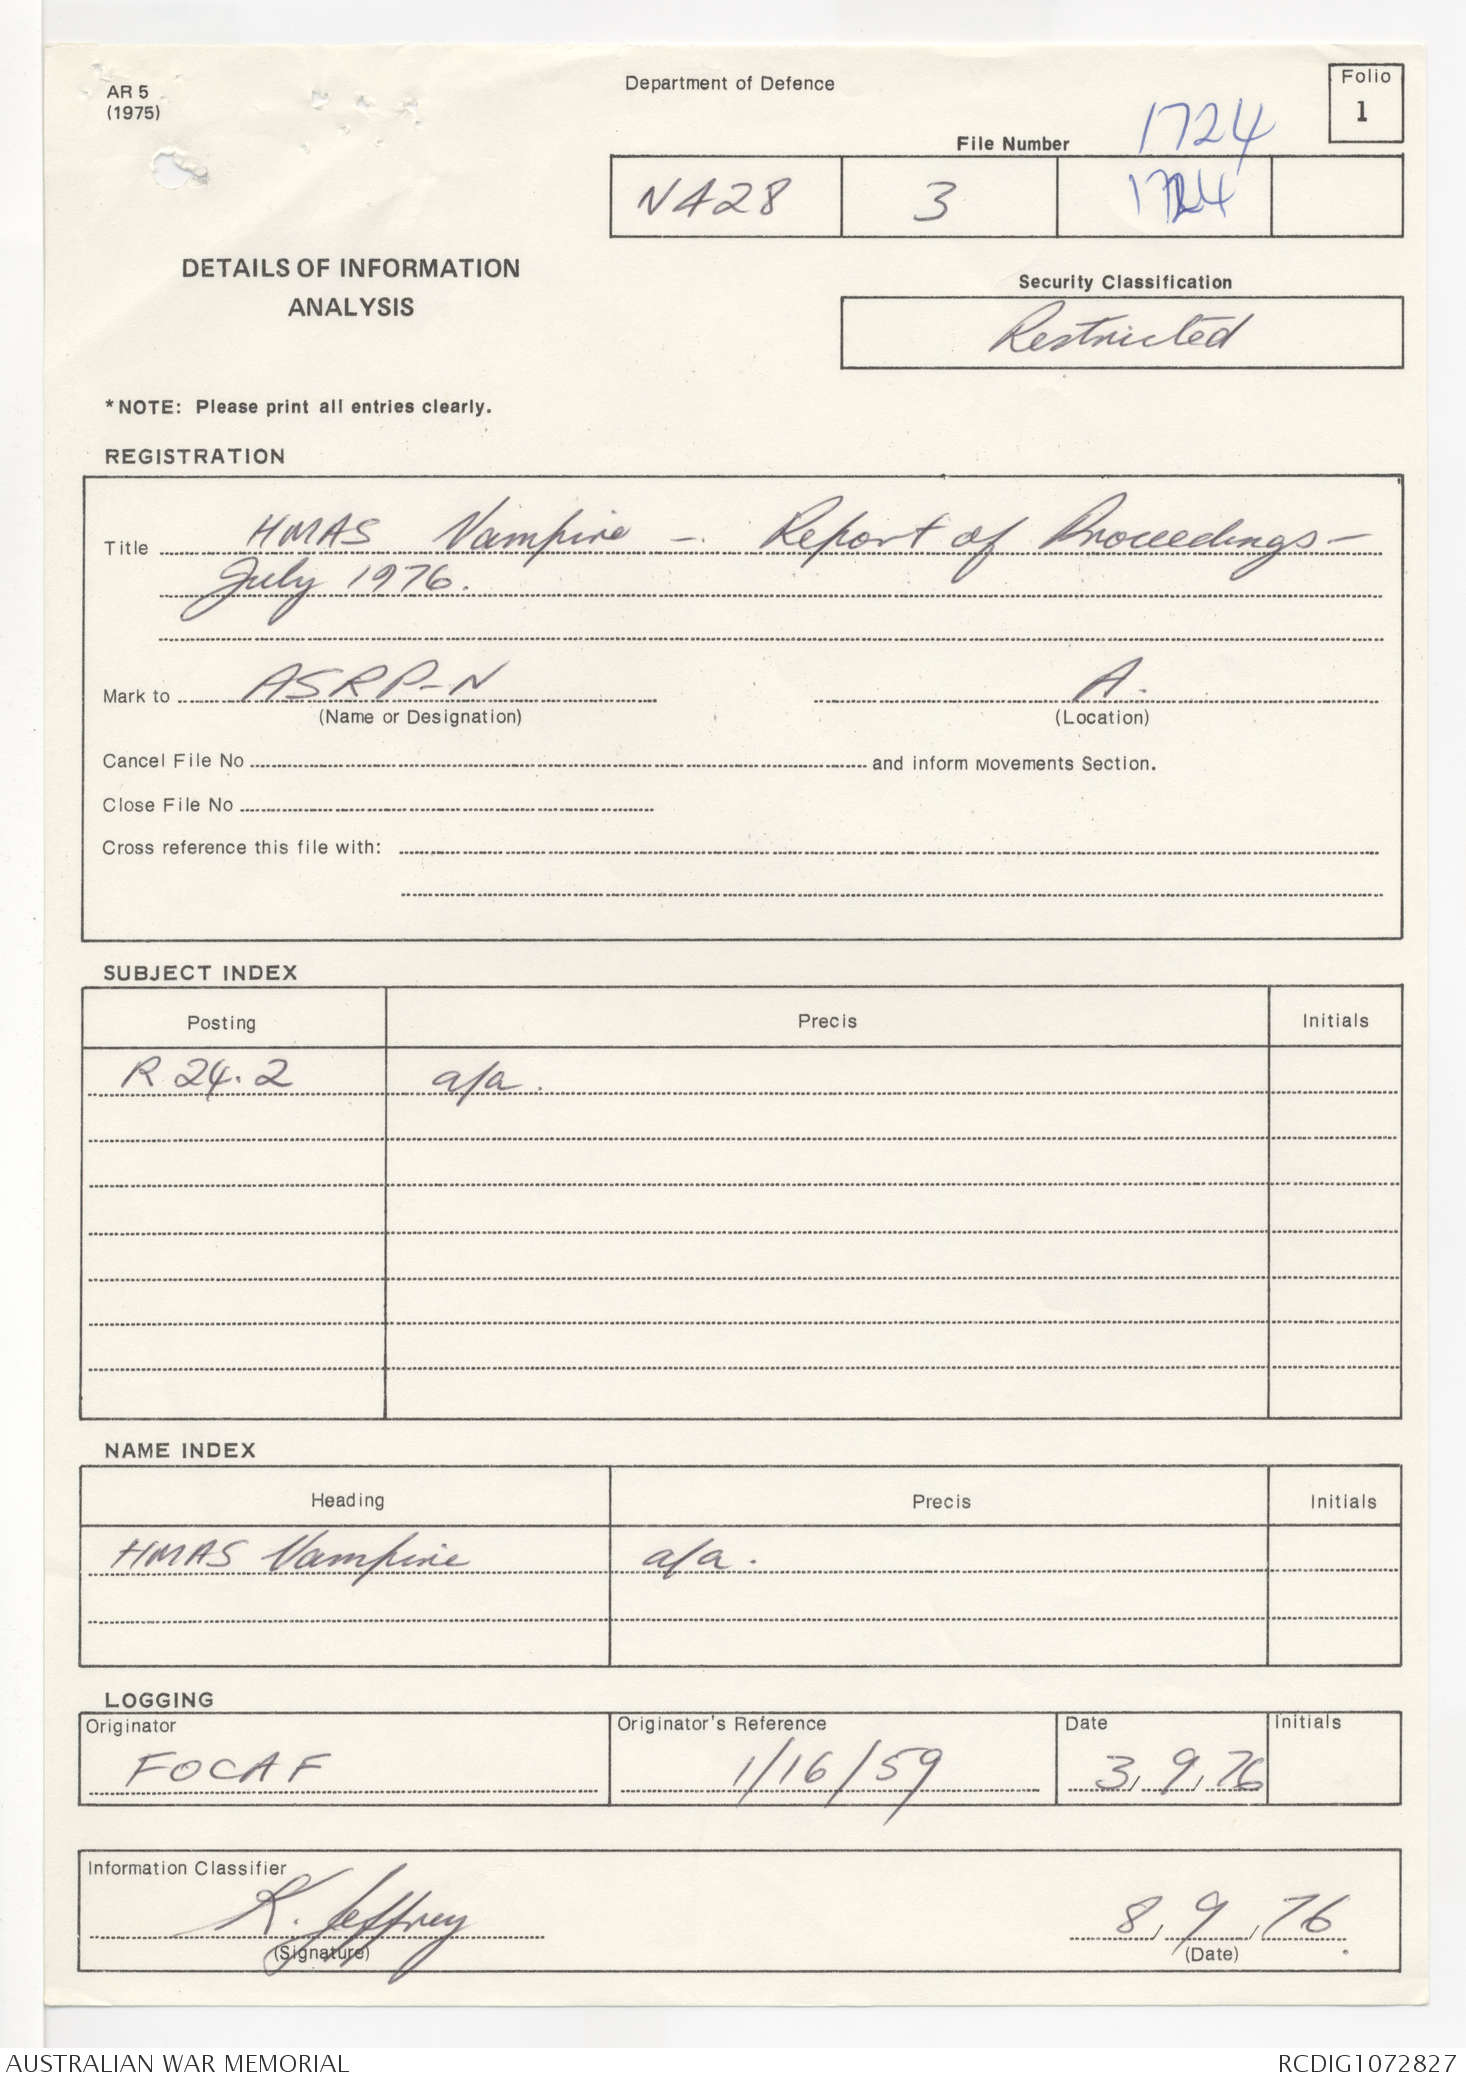 AR 5
(1975)
Department of Defence
Folio
1
File Number
1724
NA28 3 1724
DETAILS OF INFORMATION
ANALYSIS
Security Classification
Restricted
*NOTE: Please print all entries clearly.
REGISTRATION
Title HMAS Vampire - Report of Proceedings -
July 1976.
Mark to ASRP-N A.
(Name or Designation) (Location)
Cancel File No and inform Movements Section.
Close File No
Cross reference this file with:
SUBJECT INDEX
Posting Precis Initials
R 24.2 a/a.
NAME INDEX
Heading Precis Initials
HMAS Vampire a/a.
LOGGING
Originator Originator's Reference Date Initials
FOCAF 1/16/59 3, 9, 76
Information Classifier
K. Jeffrey 8, 9, 76
(Signature) (Date)
AUSTRALIAN WAR MEMORIAL RCDIG1072827